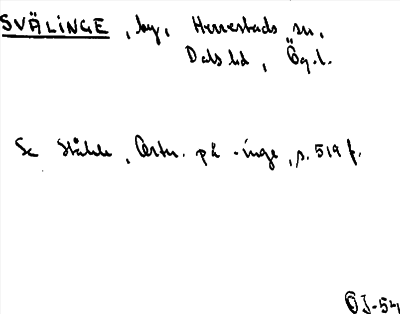 SVÄLINGE, by, Herrestads sn,
Dals hd, Ög.l.
Se Ståhle, Ortn. på -inge, s. 519 f.
ÖJ-54